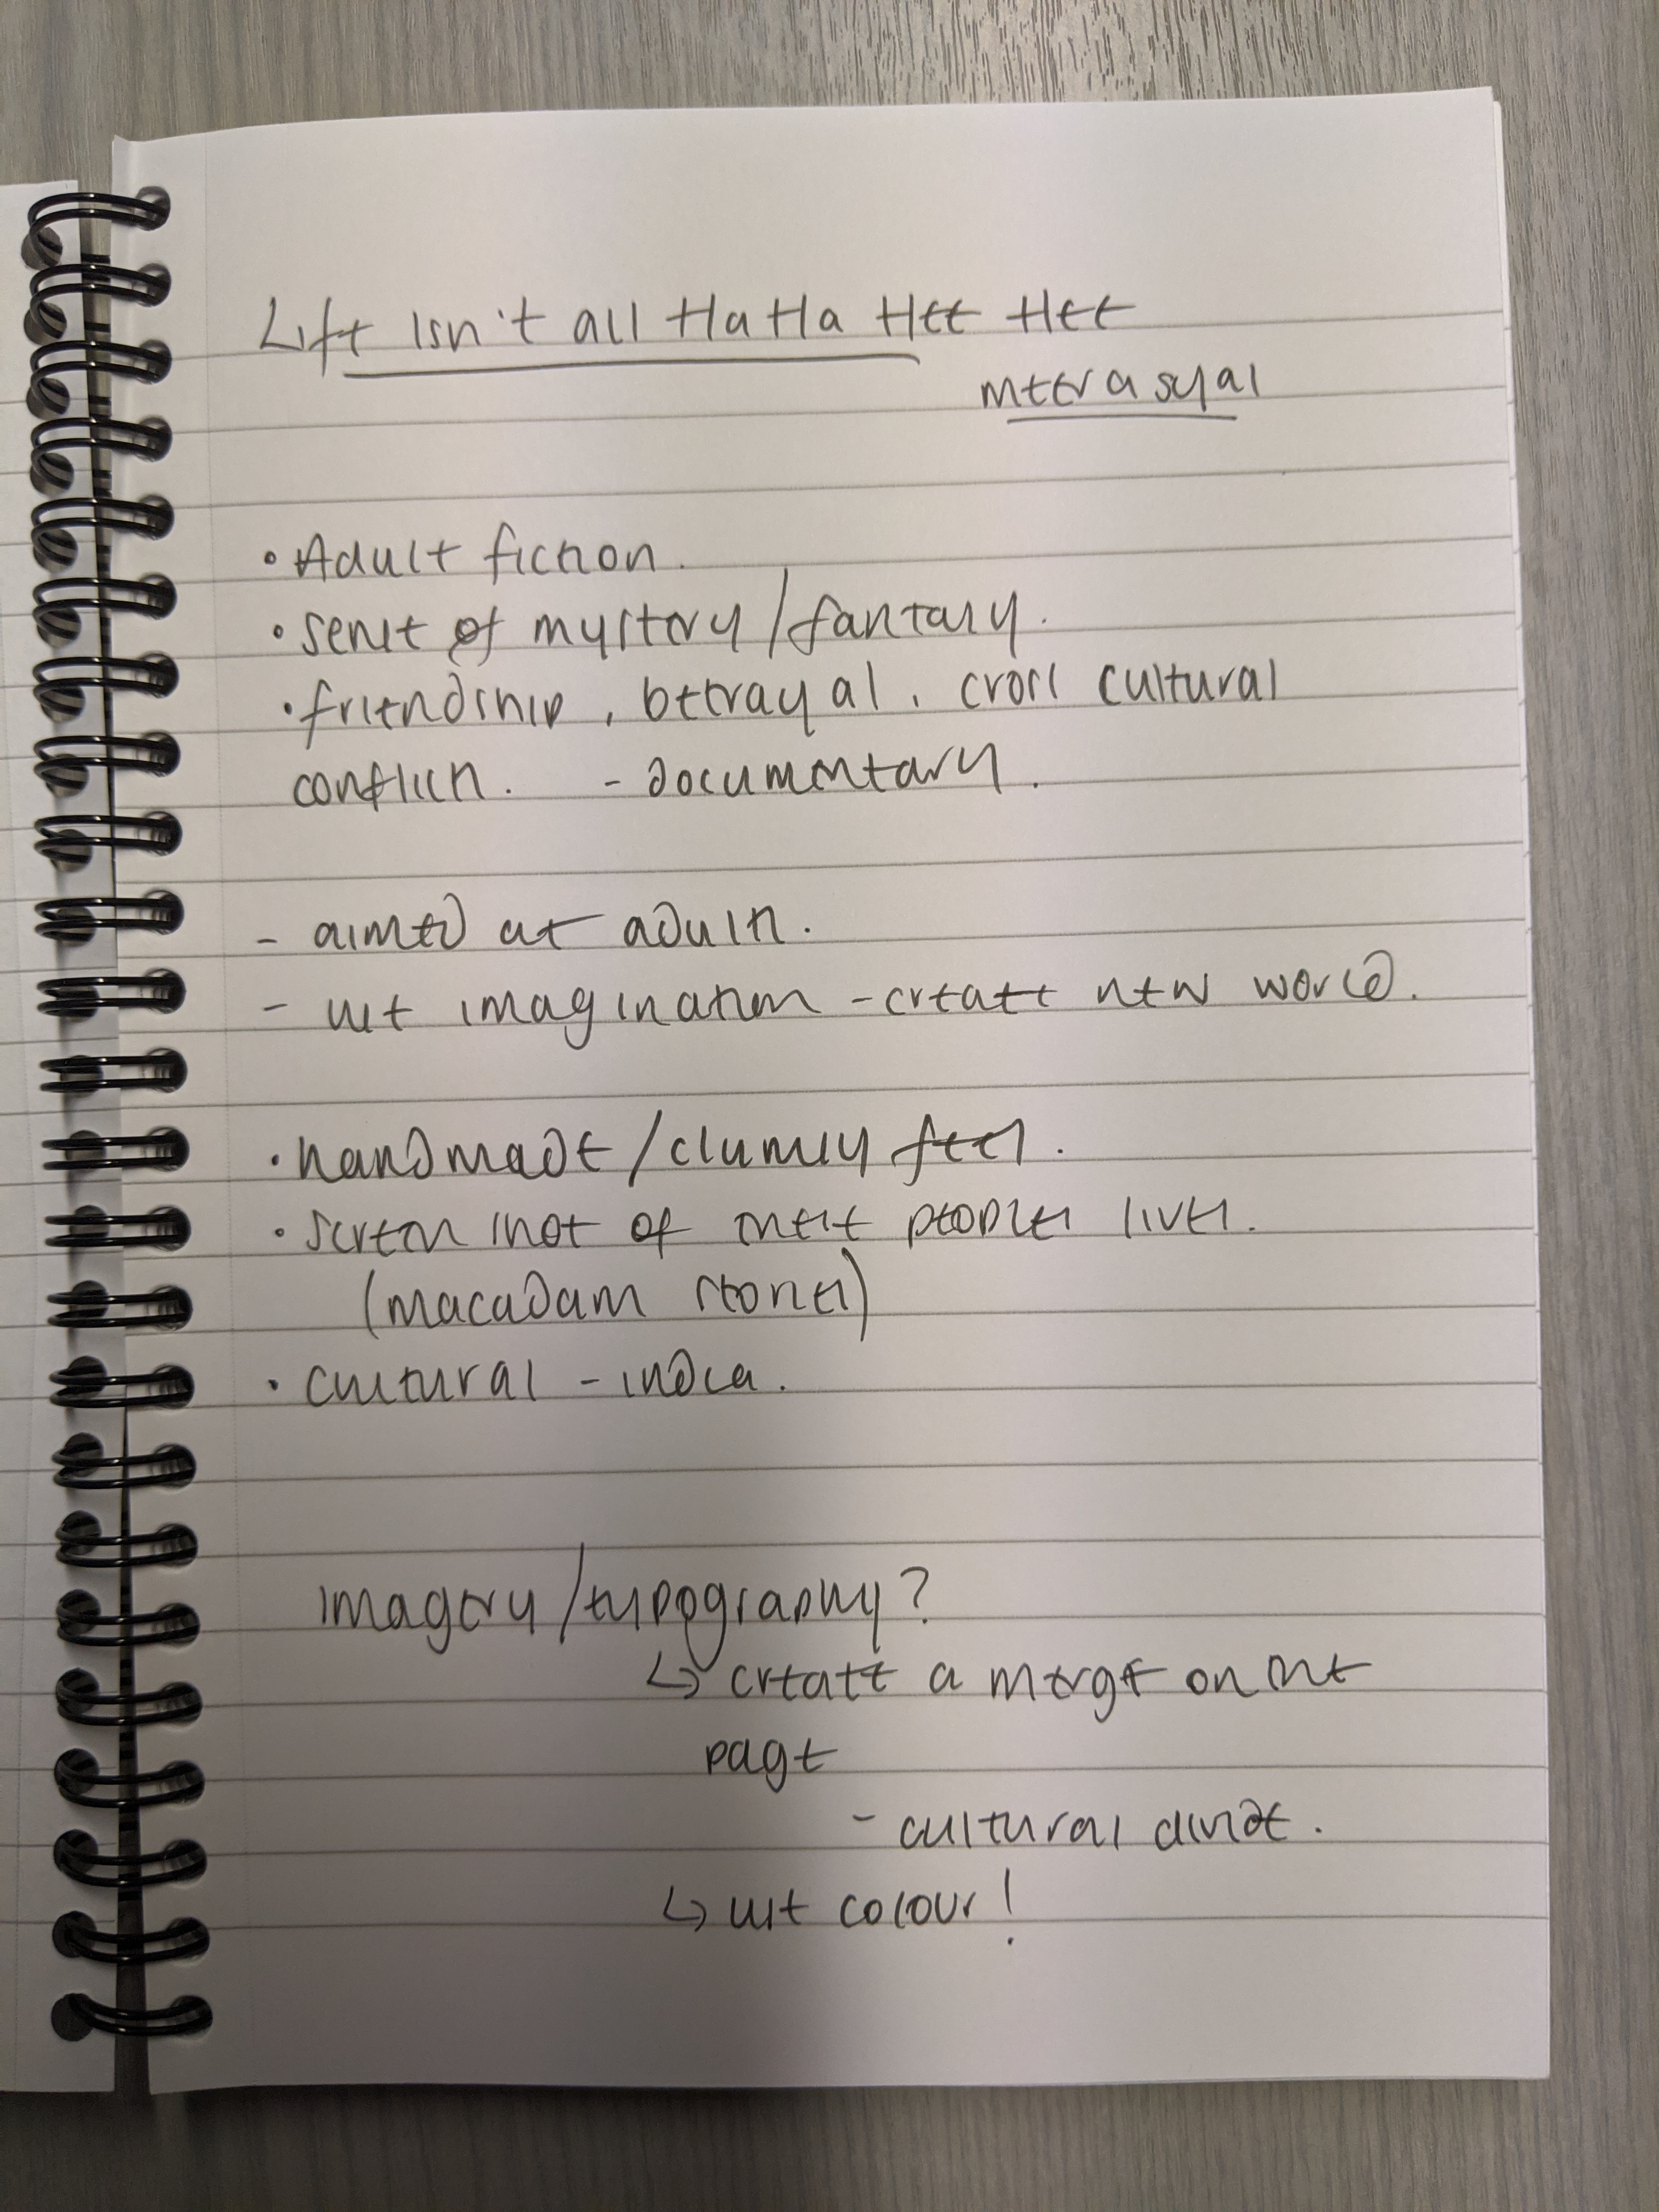 Life isn't all Ha Ha Hee Hee
meera syal
• Adult fiction.
• sense of mystery / fantasy.
• friendship, betrayal, cross cultural
conflicts. - documentary.
- aimed at adults.
- use imagination - create new world.
• handmade / clumsy feel.
• screen shot of these peoples lives.
(macadam stones)
• cultural - india.
imagery / typography?
↳ create a merge on the
page
- cultural divide.
↳ use colour!